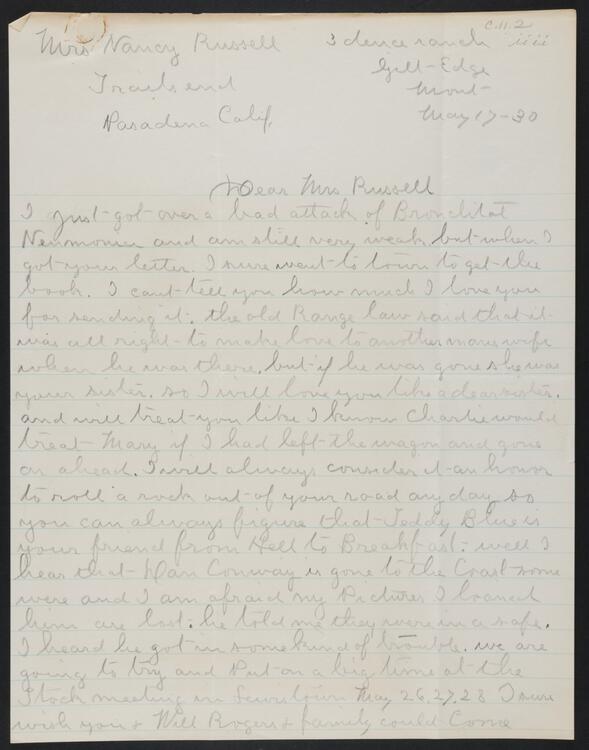 C.11.2
Mrs Nancy Russell 3 duece ranch
Trails end Gilt-Edge
Pasadena Calif. Mont-
May 17-30
Dear Mrs Russell
I just got over a bad attack of Bronchitat
Neumonia and am still very weak, but when I
got your letter. I sure went to town to get the
book. I cant tell you how much I love you
for sending it. the old Range law said that it
was all right to make love to another mans wife
when he was there, but if he was gone she was
your sister. so I will love you like a dear sister.
and will treat you like I know Charlie would
treat Mary if I had left the wagon and gone
on ahead. I will always consider it an honor
to roll a rock out of your road any day so
you can always figure that Teddy Blue is
your friend from Hell to Breakfast. well I
hear that Dan Conway is gone to the Coast some
were and I am afraid my Pictures I loaned
him are lost. he told me they were in a safe.
I heard he got in some kind of trouble. we are
going to try and Put on a big time at the
Stock meeting in Lewistown May 26,27,28 I sure
wish you & Will Rogers & family could Come